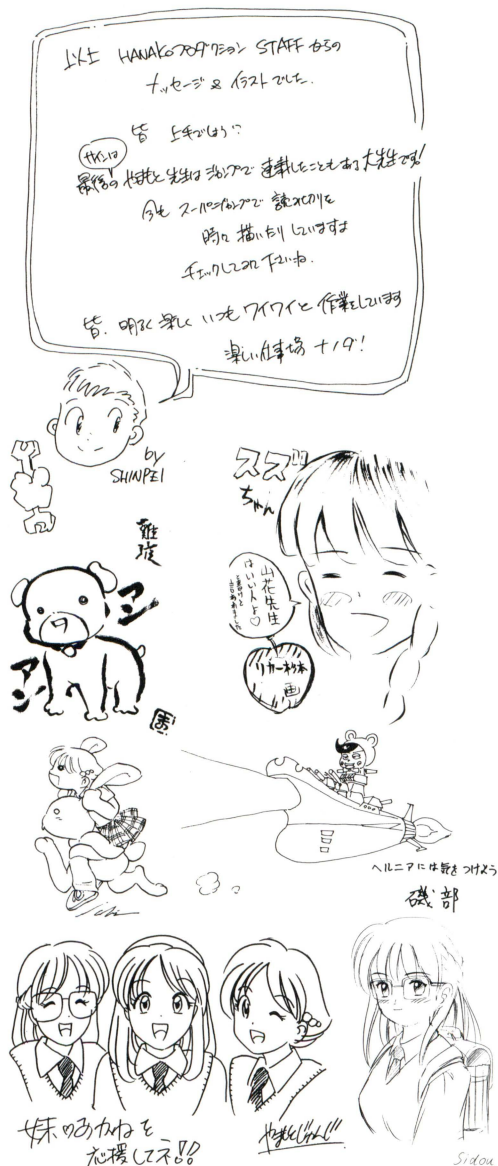 以上 HANAKOプロダクション STAFFからの
メッセージ & イラストでした.
皆 上手でしょう?
サインは
最後のやまもと先生はジャンプで連載したこともある大先生です!
今も スーパージャンプで 読み切りを
時々 描いたりしていますよ
チェックしてみて下さいね.
皆. 明るく 楽しく いつもワイワイと 作業をしています
楽しい仕事場 ナノダ!
by
SHINPEI
スズ
ちゃん
山花先生
はいい人よ♡
リカー杉本
画
アン
アン
ヘルニアには気をつけよう
磯部
妹のあかねを
応援してネ!!
やまもとじゅんじ
Sidou